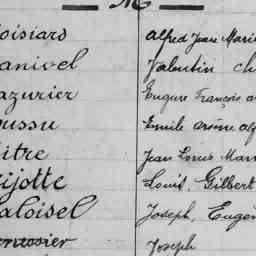 M
oisiard alfred Jean Mari
anivel Valentin ch
azurier Eugène François a
oussu Emile arsène alf
itre Jean Louis Mar
ijotte Louis, Gilbert
aloisel Joseph, Eugèn
Joseph